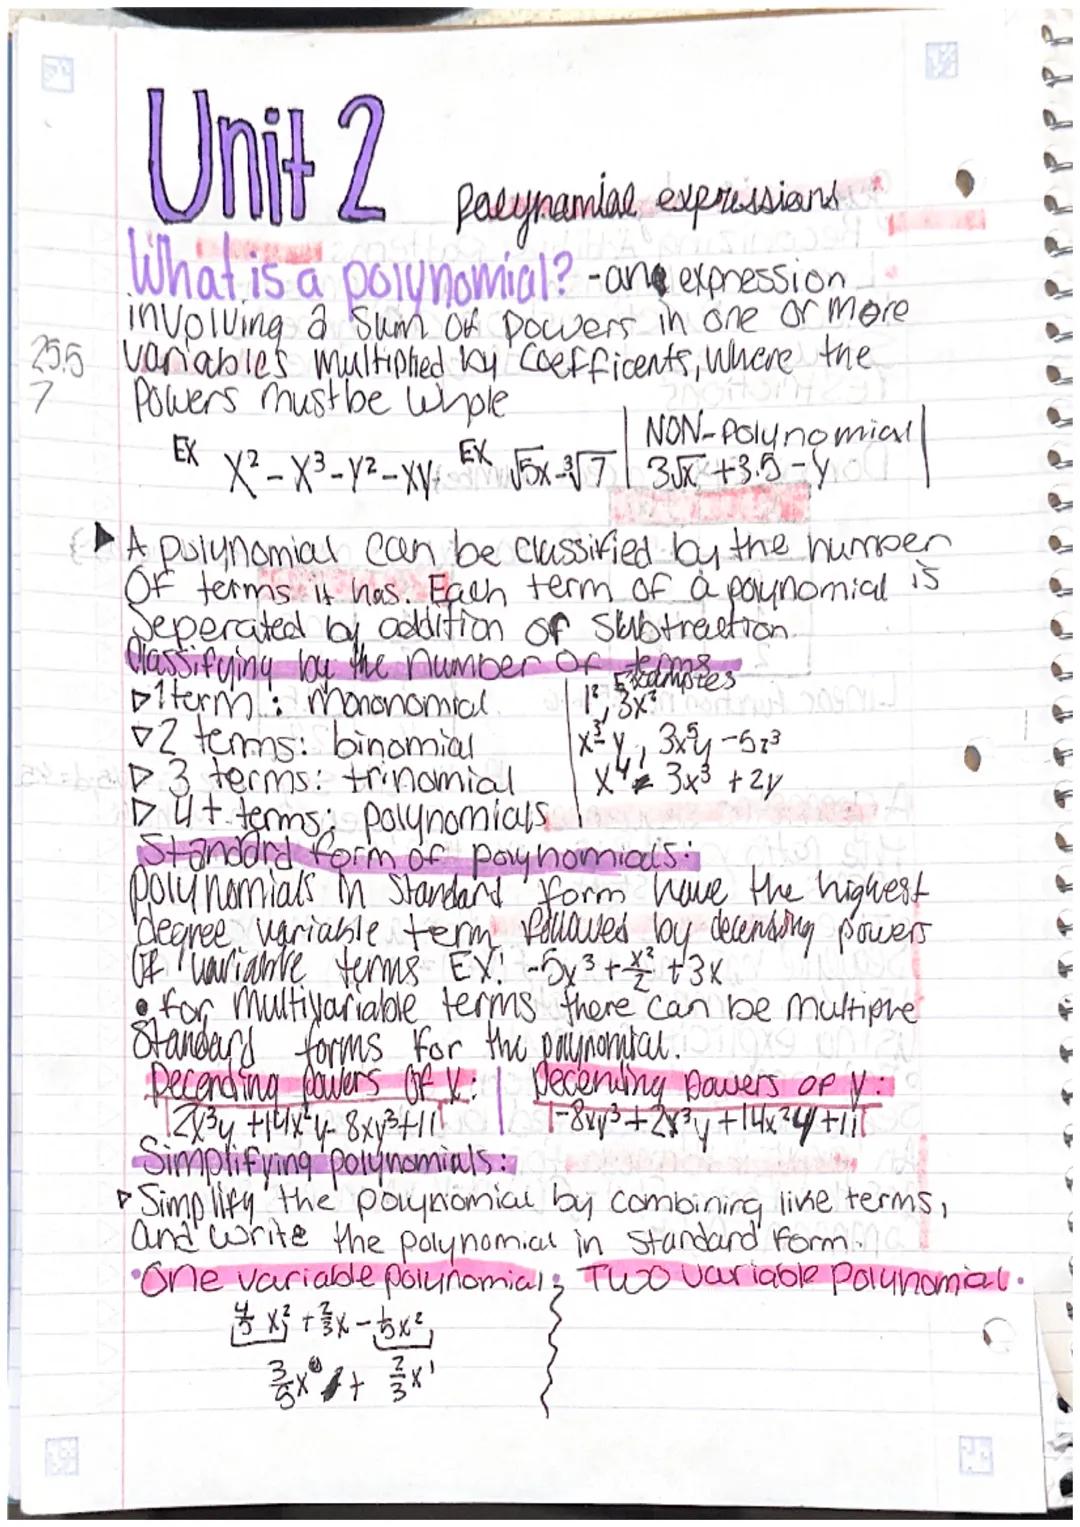 Unit 2
polynomial expressions
What is a polynomial? - an expression
involving a sum of powers in one or more
variables multiplied by coefficents, where the
powers must be whole
25.5
7
EX x² - x³ - y² - xy EX √5x - ³√7 NON-polynomial
3√x + 3.5 - y
A polynomial can be classified by the number
of terms it has. Each term of a polynomial is
seperated by addition of subtraction.
Classifying by the number of terms
Examples
1 term: monomial 1², 3x²
2 terms: binomial x³ - y, 3x⁵y - 5z³
3 terms: trinomial x⁴ - 3x³ + 2y
4+ terms: polynomials
Standard form of polynomials:
polynomials in standard form have the highest
degree variable term followed by decending powers
of variable terms EX: -5x³ + x²/2 + 3x
• for multivariable terms there can be multiple
standard forms for the polynomial.
Decending powers of x: Decending powers of y:
2x³y + 14x²y - 8xy³ + 11 -8xy³ + 2x³y + 14x²y + 11
Simplifying polynomials:
Simplify the polynomial by combining like terms,
and write the polynomial in standard form.
• One variable polynomial: Two variable polynomial.
4/5 x² + 2/3x - 1/5x²
3/5x + 2/3x¹